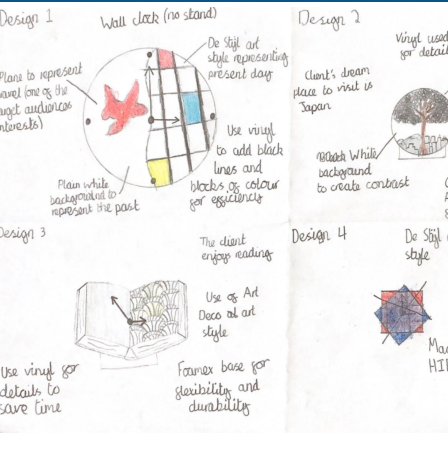 Design 1
Wall clock (no stand)
De Stijl art
style representing
present day
Plane to represent
travel (one of the
target audiences
interests)
Use vinyl
to add black
lines and
blocks of colour
for efficiency
Plain white
background to
represent the past
Design 2
Vinyl used
for detail
Client's dream
place to visit is
Japan
White
background
to create contrast
Design 3
The client
enjoys reading
Use of Art
Deco art
style
Use vinyl for
details to
save time
Foamex base for
flexibility and
durability
Design 4
De Stijl
style